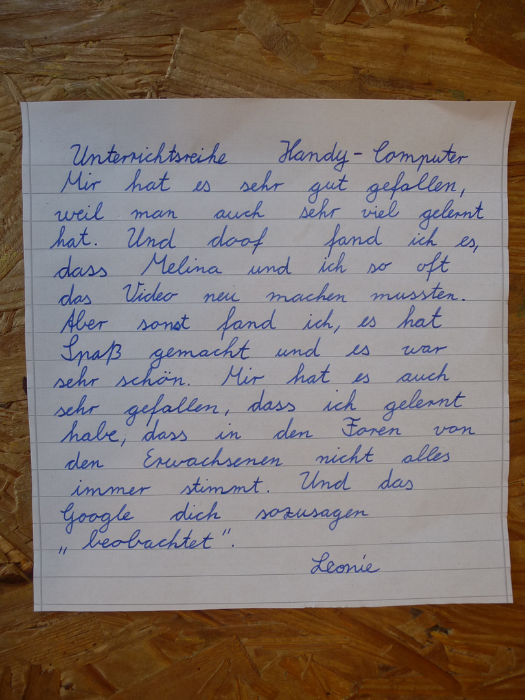 Unterrichtsreihe Handy-Computer
Mir hat es sehr gut gefallen,
weil man auch sehr viel gelernt
hat. Und doof fand ich es,
dass Melina und ich so oft
das Video neu machen mussten.
Aber sonst fand ich, es hat
Spaß gemacht und es war
sehr schön. Mir hat es auch
sehr gefallen, dass ich gelernt
habe, dass in den Foren von
den Erwachsenen nicht alles
immer stimmt. Und das
Google dich sozusagen
„beobachtet“.
Leonie